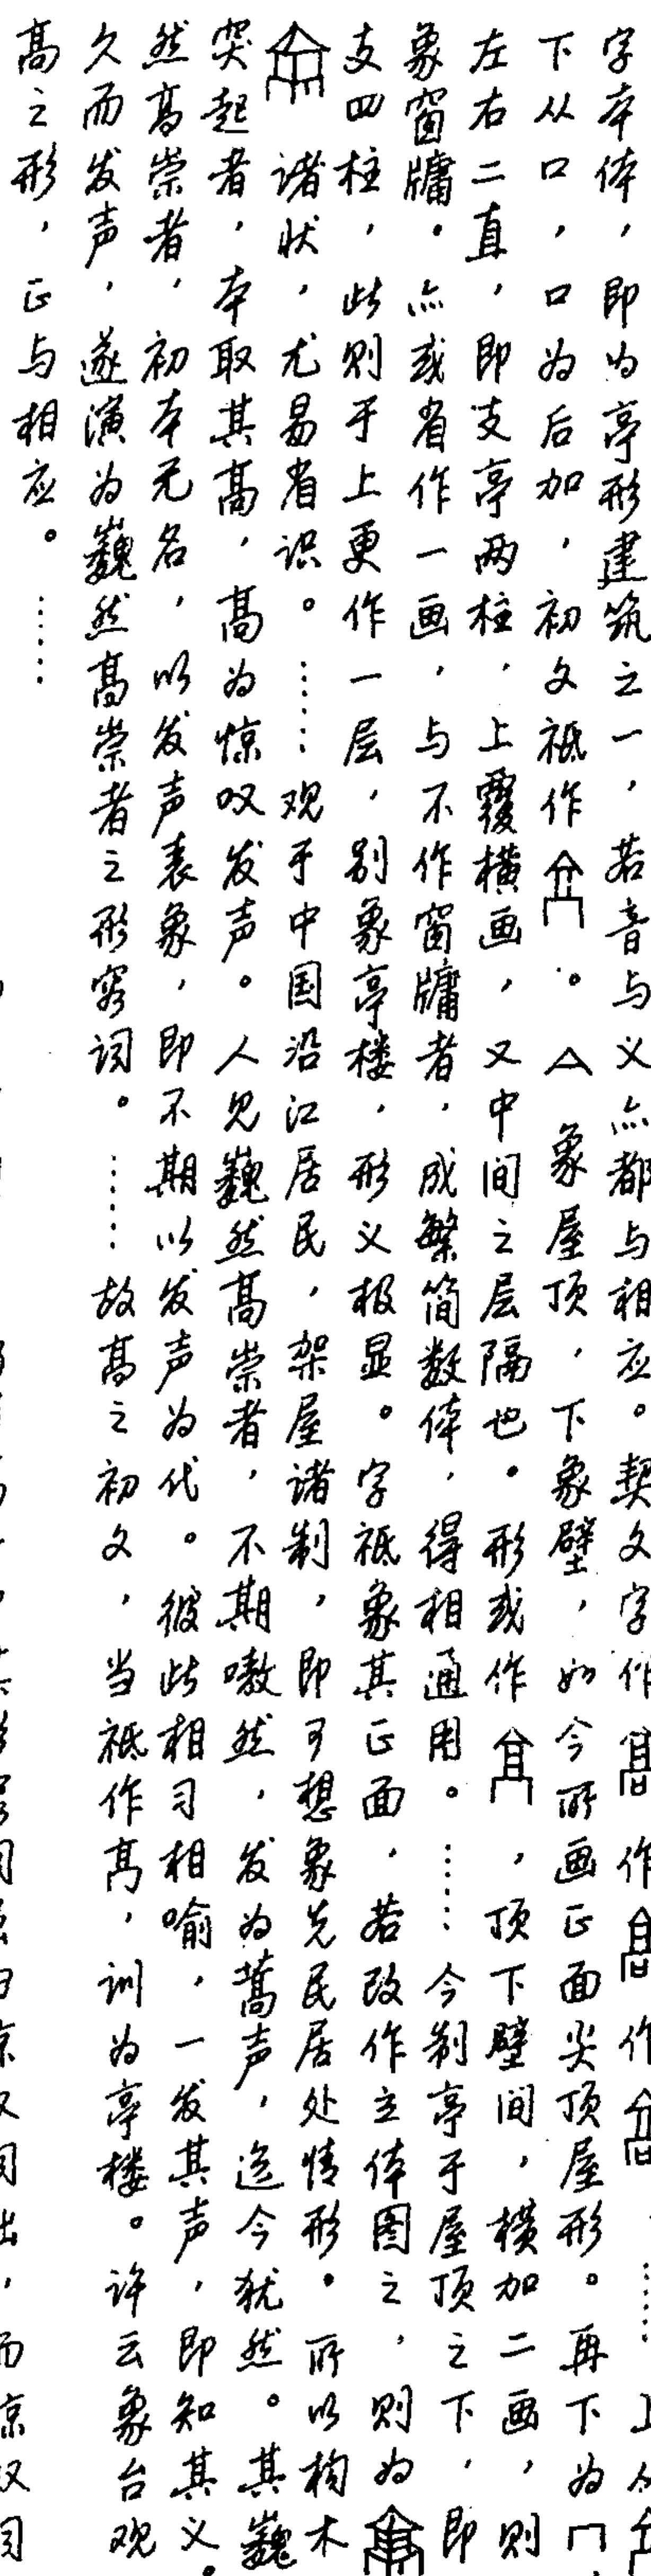 字本体，即为亭形建筑之一，若音与义亦都与相应。契文字作 作 作 ……上从
下从口，口为后加，初文祗作 。亼象屋顶，下象壁，如今所画正面尖顶屋形。再下为冂，
左右二直，即支亭两柱，上覆横画，又中间之层隔也。形或作 ，顶下壁间，横加二画，则
象窗牖。亦或省作一画，与不作窗牖者，成繁简数体，得相通用。……今制亭于屋顶之下，即
支四柱，此则于上更作一层，别象亭楼，形义极显。字祗象其正面，若改作立体图之，则为
诸状，尤易省识。……观于中国沿江居民，架屋诸制，即可想象先民居处情形。所以构木
突起者，本取其高，高为惊叹发声。人见巍然高崇者，不期嗷然，发为蒿声，迄今犹然。其巍
然高崇者，初本无名，以发声表象，即不期以发声为代。彼此相习相喻，一发其声，即知其义。
久而发声，遂演为巍然高崇者之形容词。……故高之初文，当祗作髙，训为亭楼。许云象台观
高之形，正与相应。……